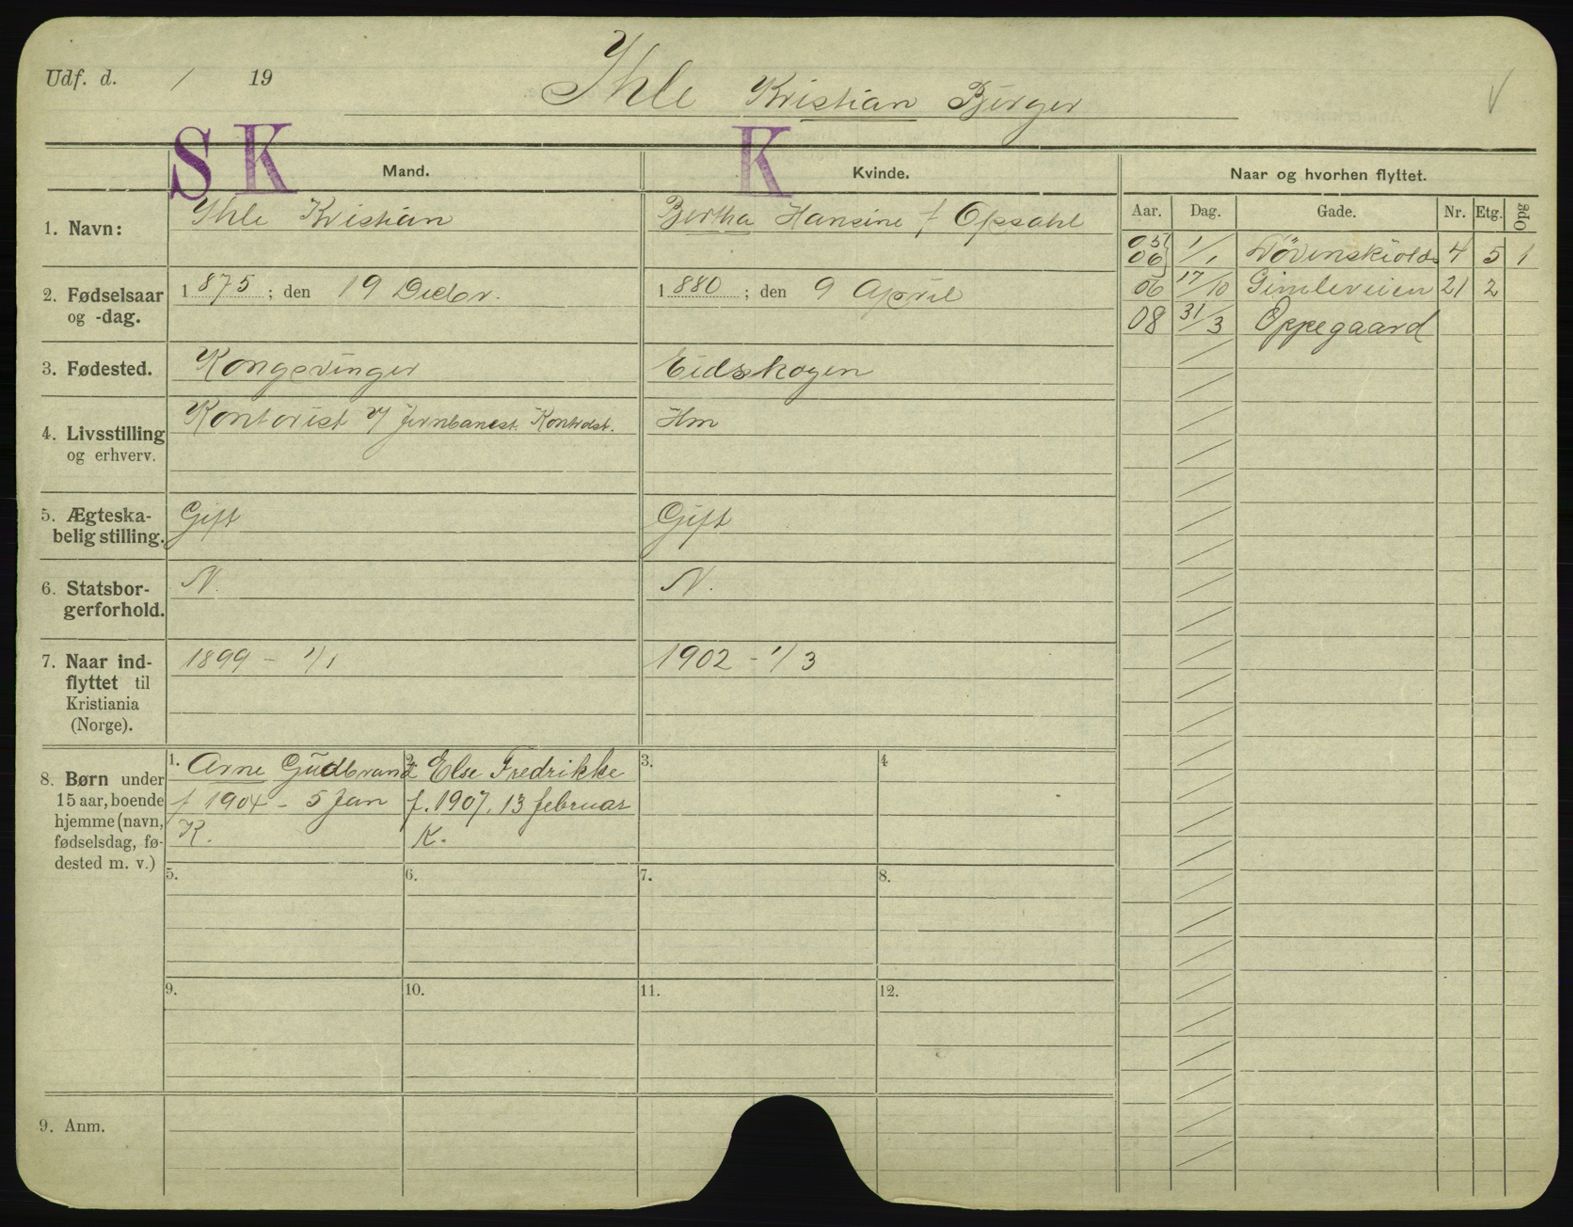 Udf. d. / 19
Ihle Kristian Birger
S K K
Mand. Kvinde. Naar og hvorhen flyttet.
Aar. Dag. Gade. Nr. Etg. Opg
1. Navn: Ihle Kristian Bertha Hansine f Opsahl
05/06 1/1 Løvenskiolds 4 5 1
2. Fødselsaar og -dag. 1875; den 19 Decbr. 1880; den 9 April
06 17/10 Gimleveien 21 2
08 31/3 Oppegaard
3. Fødested. Kongsvinger Eidskogen
4. Livsstilling og erhverv. Kontorist v/ Jernbanest. Hm
5. Ægteska-
belig stilling. Gift Gift
6. Statsbor-
gerforhold. N. N.
7. Naar ind-
flyttet til
Kristiania
(Norge). 1899 - 1/1 1902 - 1/3
8. Børn under
15 aar, boende
hjemme (navn,
fødselsdag, fø-
dested m. v.)
1. Arne Gudbrand
f 1904 - 5 Jan
K.
2. Else Fredrikke
f. 1907. 13 februar
K.
3. 4
5. 6. 7. 8.
9. 10. 11. 12.
9. Anm.